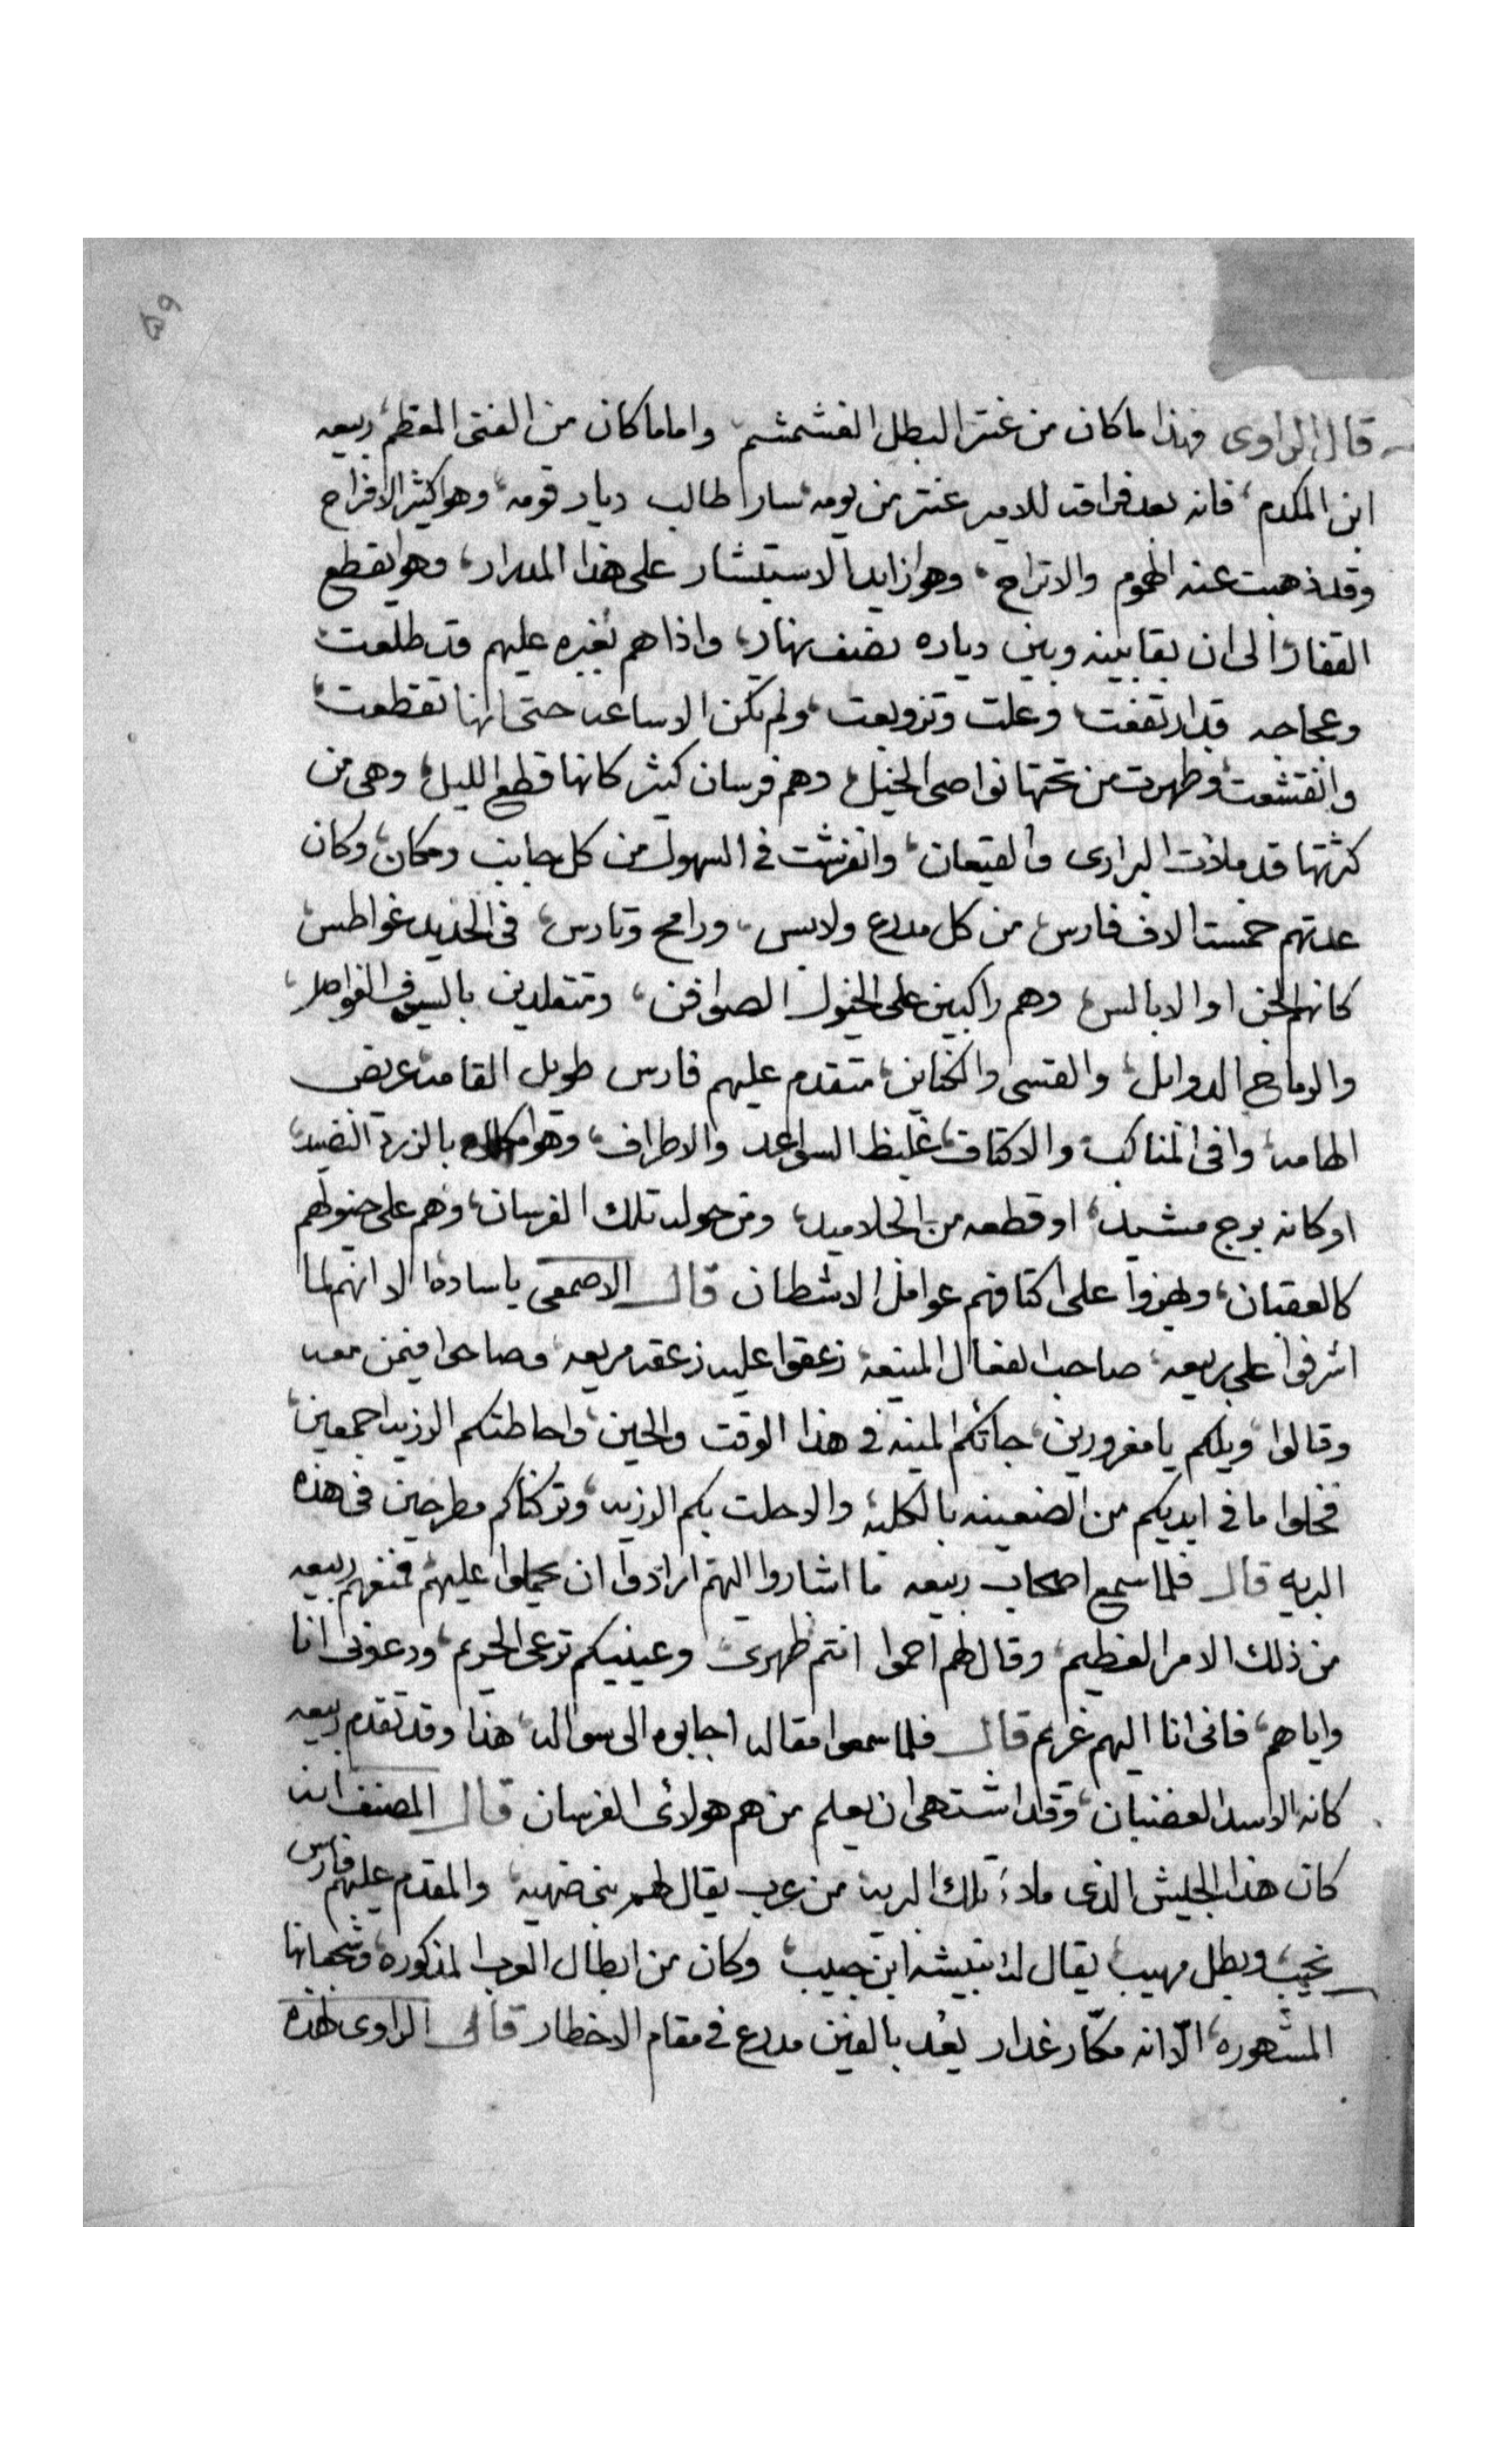 قال الراوى فهذا ما كان من عنتر البطل الغشمشم واما ما كان من الفتى المعظم ربيعه
ابن المكدم فانه بعد فراقه للامير عنتر من يومه سار طالب ديار قومه وهو كثير الافراح
وقد ذهبت عنه الهموم والاتراح وهو زايد الاستبشار على هذا المدار وهو يقطع
القفار الى ان بقا بينه وبين دياره نصف نهار واذا هم بغبره عليهم قد طلعت
وعجاجه قد ارتفعت وعلت وتزوبعت ولم تكن الا ساعه حتى انها تقطعت
وانقشعت وظهرت من تحتها نواصى الخيل وهم فرسان كثير كانها قطع الليل وهى من
كثرتها قد ملات البرارى والقيعان وانفرشت فى السهول من كل جانب ومكان وكان
عدتهم خمست الاف فارس من كل مدرع ولابس ورامح وتارس فى الحديد غواطس
كانهم الجن او الابالس وهم راكبين على الخيول الصوافن ومتقلدين بالسيوف الفواصل
والرماح الدوابل والقسى والكناين متقدم عليهم فارس طويل القامه عريض
الهامه وافى المناكب والاكتاف غليظ السواعد والاطراف وهو بالزرد النضيد
او كانه برج مشيد او قطعه من الجلاميد ومن حوله تلك الفرسان وهم على خيولهم
كالعقبان وهزوا على اكتافهم عوامل الاشطان قال الاصمعى ياساده الا انهم لما
اشرفوا على ربيعه صاحب الفعال المنيعه زعقوا عليه زعقه مريعه وصاحوا فيمن معه
وقالوا ويلكم يا مغرورين جاتكم المنيه فى هذا الوقت والحين واحاطتكم الرزيه اجمعين
فخلوا ما فى ايديكم من الضعينه بالكليه والا حلت بكم الرزيه وتركناكم مطرحين فى هذه
البريه قال فلما سمع اصحاب ربيعه ما اشاروا اليهم ارادوا ان يحملوا عليهم فمنعهم ربيعه
من ذلك الامر العظيم وقال لهم احموا انتم ظهرى وعينيكم ترعى الحريم ودعونى انا
واياهم فانى انا اليهم غريم قال فلما سمعوا مقاله اجابوه الى سواله هذا وقد تقدم ربيعه
كانه الاسد الغضبان وقد اشتهى ان يعلم من هم هولائ الفرسان قال المصنف انه
كان هذا الجيش الذى ملاء تلك البريه من عرب يقال لهم بنى ضهيه والمقدم عليهم فارس
نجيب وبطل مهيب يقال له نبيشه ابن حبيب وكان من ابطال العرب المذكوره وشجعانها
المشهوره الّا انه مكّار غدار يعُد بالفين مدرع فى مقام الاخطار قال الراوى لهذه